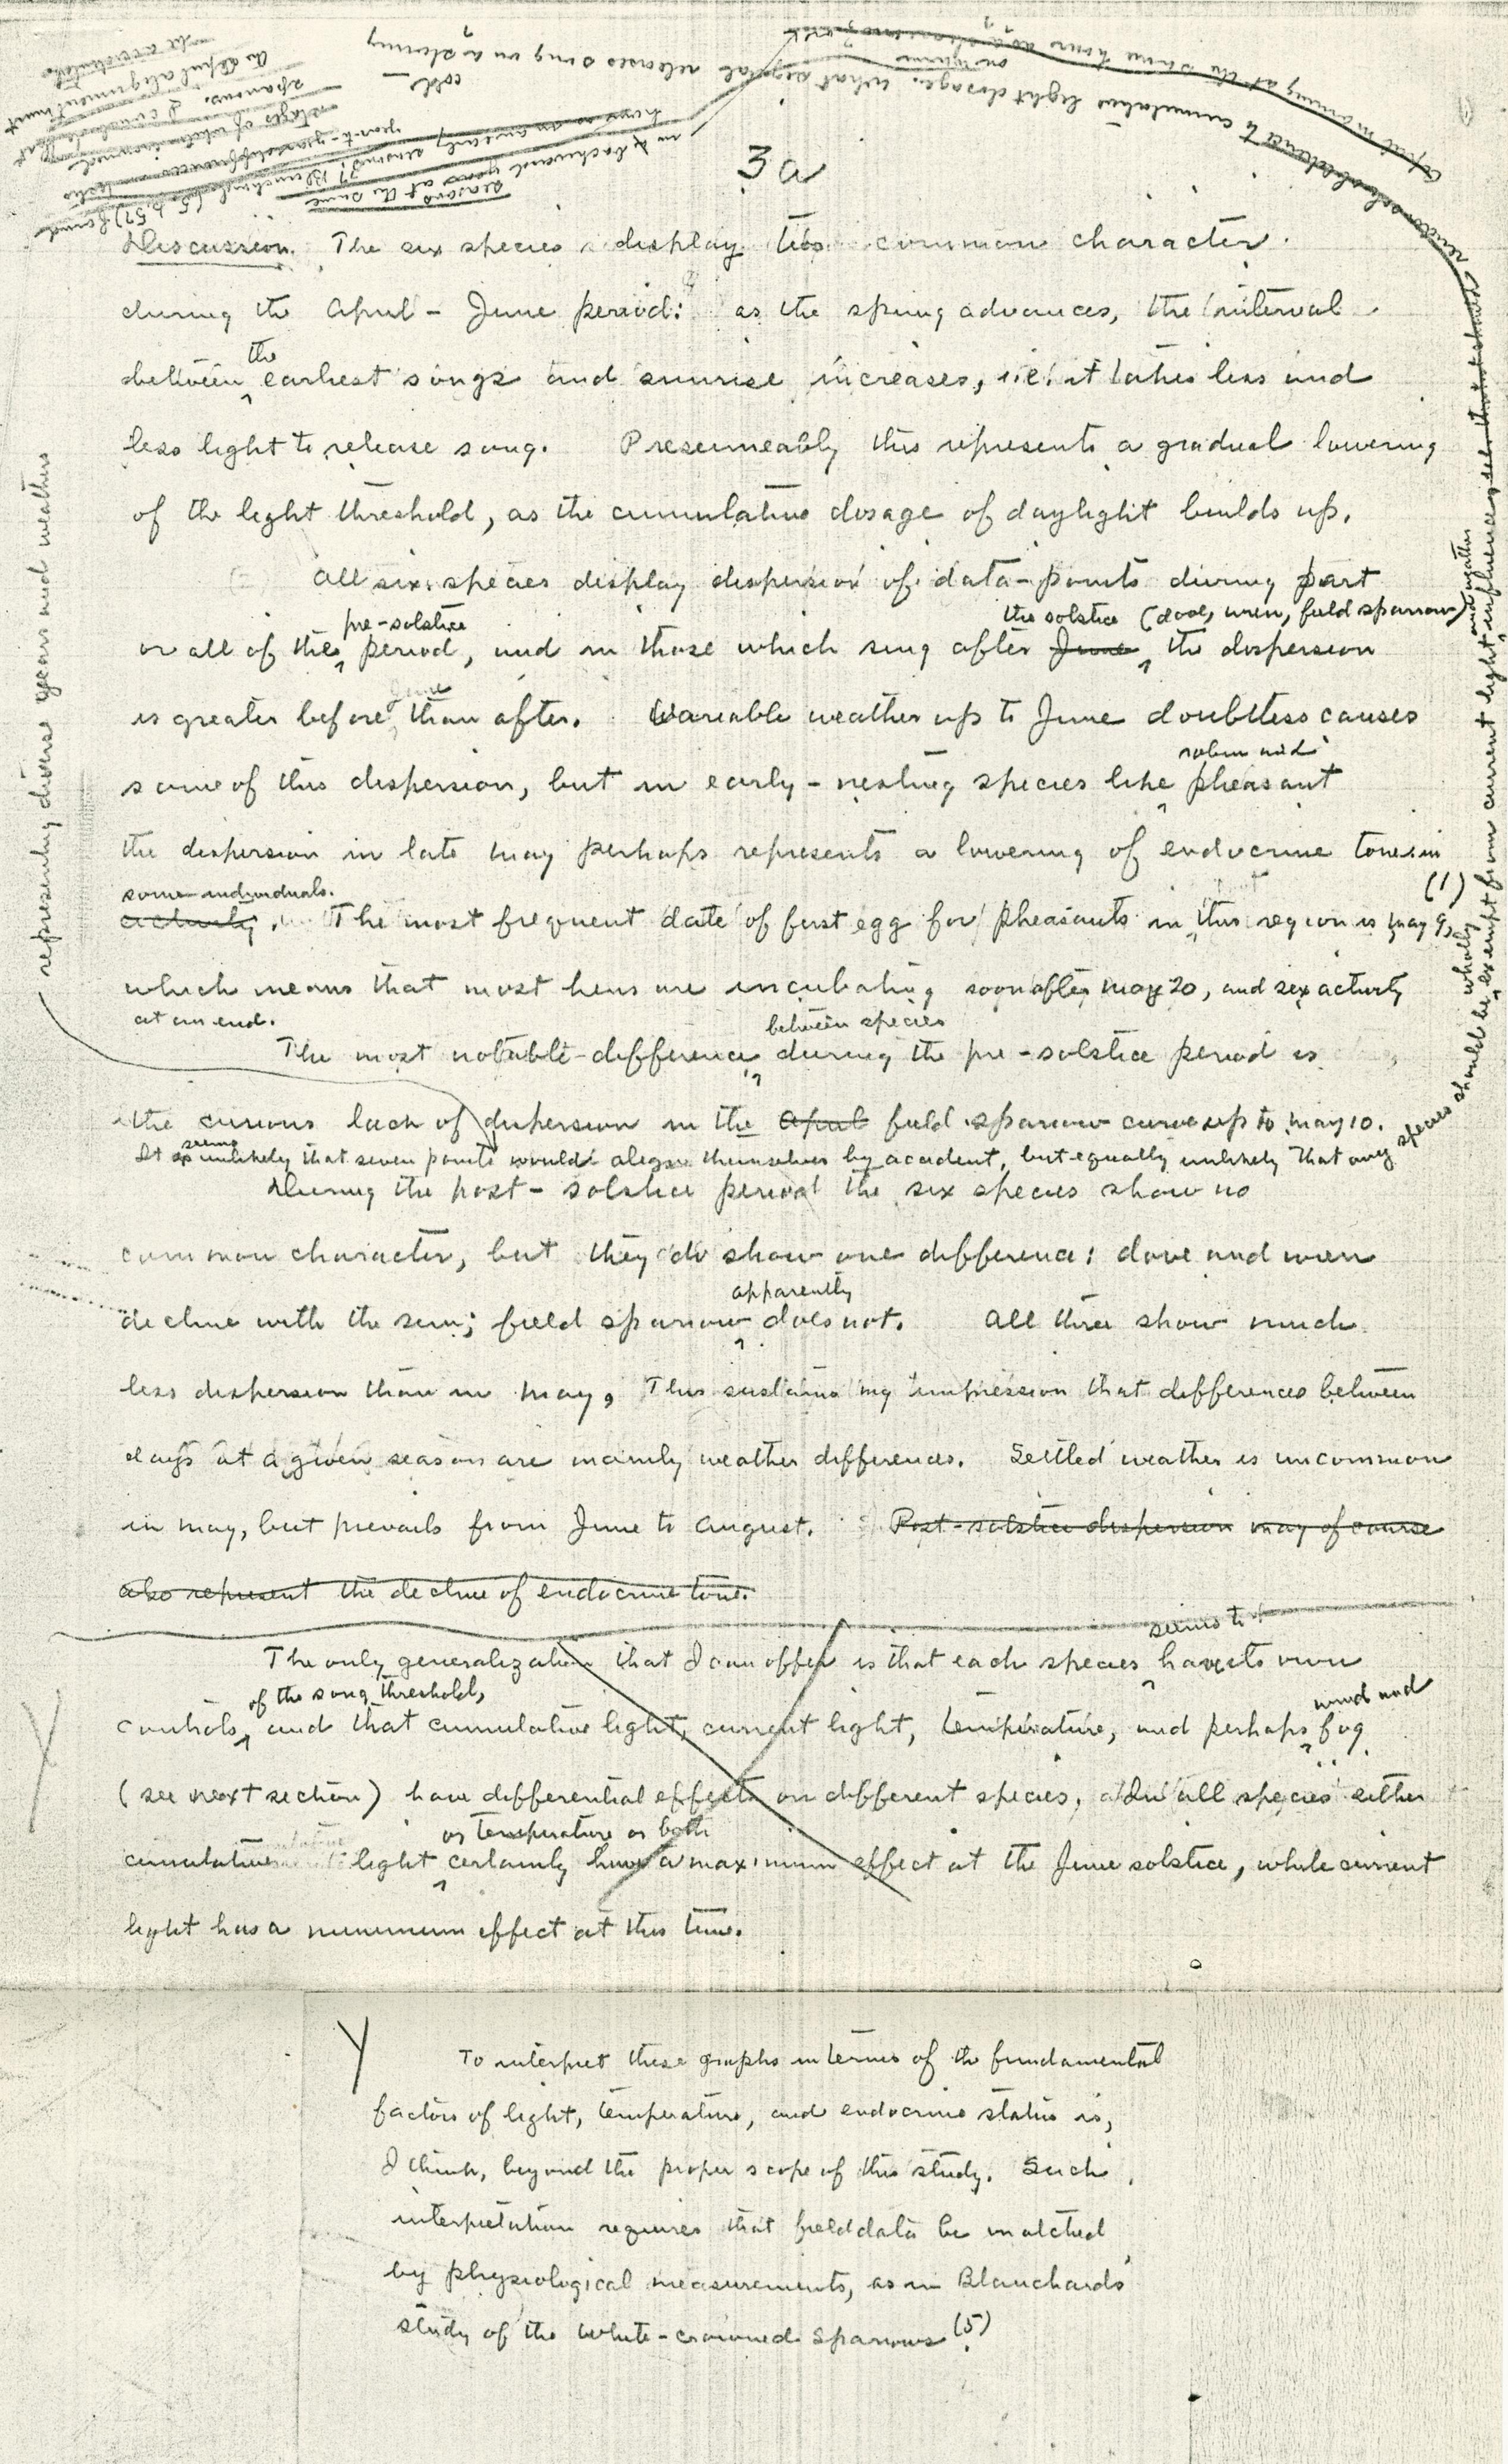 3a
Discussion. The six species display two common character
during the April - June period: as the spring advances, the interval
between the earliest songs and sunrise increases, i.e. it takes less and
less light to release song. Presumeably this represents a gradual lowering
of the light threshold, as the cumulative dosage of daylight builds up.
All six species display dispersion of data-points during part
or all of the pre-solstice period, and in those which sing after June the solstice (dove, wren, field sparrow) the dispersion
is greater before June than after. Variable weather up to June doubtless causes
some of this dispersion, but in early-nesting species like robin and pheasant
the dispersion in late May perhaps represents a lowering of endocrine tone in
some individuals.
activity. The most frequent date of first egg for pheasants in this region is May 9, (1)
which means that most hens are incubating soon after May 20, and sex activity
at an end.
The most notable difference between species during the pre-solstice period is
the curious lack of dispersion in the April field sparrow curve up to May 10.
It seems unlikely that seven points would aligne themselves by accident, but equally unlikely that any species should be wholly exempt from current light and weather influences
representing diverse years and weathers
During the post-solstice period the six species show no
common character, but they do show one difference: dove and wren
decline with the sun; field sparrow apparently does not. All three show much
less dispersion than in May. This sustains my impression that differences between
days at a given season are mainly weather differences. Settled weather is uncommon
in May, but prevails from June to August. Post-solstice dispersion may of course
also represent the decline of endocrine tone.
The only generalization that I can offer is that each species seems to have its own
controls of the song threshold, and that cumulative light, current light, temperature, and perhaps wind and fog
(see next section) have differential effects on different species. In all species either
cumulative light or temperature or both certainly have a maximum effect at the June solstice, while current
light has a minimum effect at this time.
Y
Y
To interpret these graphs in terms of the fundamental
factors of light, temperature, and endocrine status is,
I think, beyond the proper scope of this study. Such
interpretation requires that field data be matched
by physiological measurements, as in Blanchard's
study of the white-crowned sparrows (5)
cumulative light dosage. What signal releases song on a
April morning at the same hour as